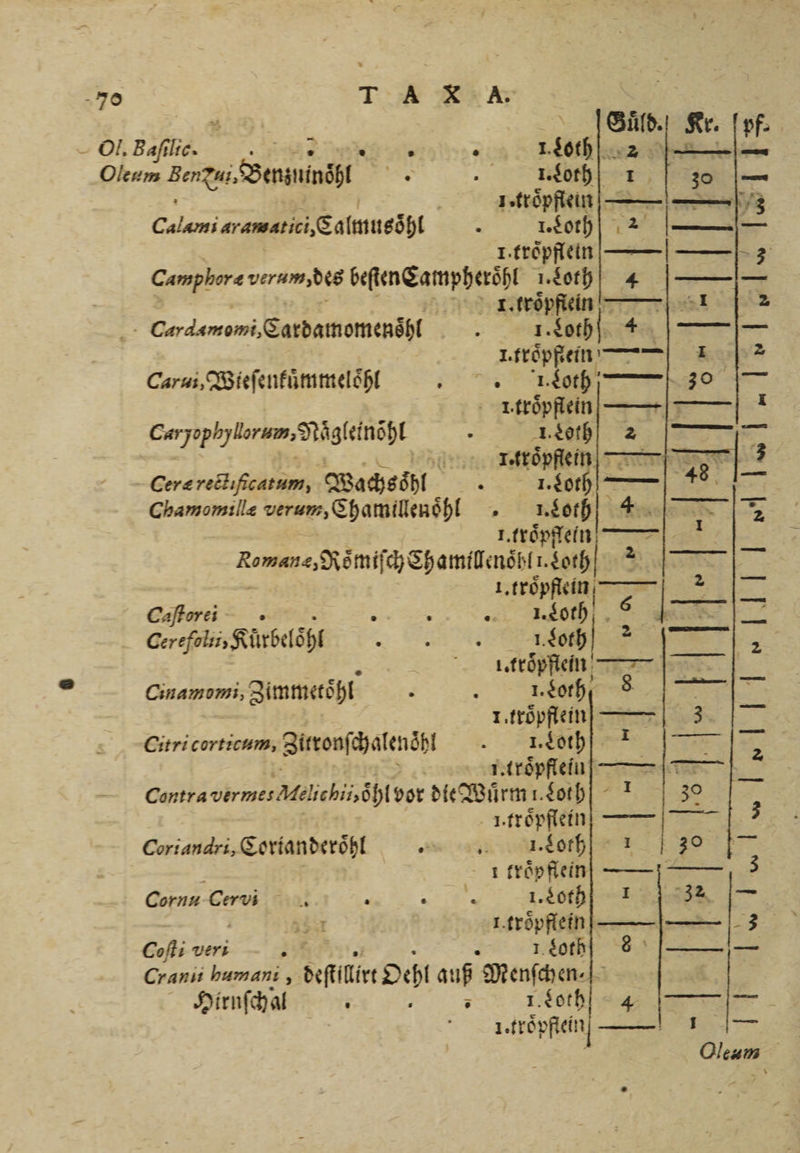 70 T A X A.
Gulb. Kr. pf.
Ol. Basilic. . . . . . 1.Loth 2 — —
Oleum Benzui, Benzuinöhl . . 1.Loth 1 30 —
1.tröpflein — — 3
Calami aramatici, Calmusöhl . 1.Loth 2 — —
1.tröpflein — — 3
Camphoræ verum, des besten Campheröhl 1.Loth 4 — —
1.tröpflein — 1 2
Cardamomi, Cardamomenöhl . 1.Loth 4 — —
1.tröpflein — 1 2
Carui, Wiesenkümmelöhl . . 1.Loth — 30 —
1.tröpflein — — 1
Caryophyllorum, Nägleinöhl . 1.Loth 2 — —
1.tröpflein — — 3
Ceræ rectificatum, Wachsöhl . 1.Loth — 48 —
Chamomillæ verum, Chamillenöhl . 1.Loth 4 — —
1.tröpflein — 1 2
Romanæ, Römisch Chamillenöhl 1.Loth 2 — —
1.tröpflein — 2 —
Castorei . . . . . 1.Loth 6 — —
Cerefolii, Kürbelöhl . . . 1.Loth 2 — —
1.tröpflein — — 2
Cinamomi, Zimmetöhl . . 1.Loth 8 — —
1.tröpflein — 3 —
Citri corticum, Zitronschalenöhl . 1.Loth 1 — —
1.tröpflein — — 2
Contra vermes Melichii, öhl vor die Würm 1.Loth 1 30 —
1.tröpflein — — 3
Coriandri, Corianderöhl . . 1.Loth 1 30 —
1 tröpflein — — 3
Cornu Cervi . . . . 1.Loth 1 32 —
1.tröpflein — — 3
Costi veri . . . . 1 Loth 8 — —
Cranii humani, destillirt Oehl auß Menschen-
Hirnschal . . . 1.Loth 4 — —
1.tröpflein — 1 —
Oleum